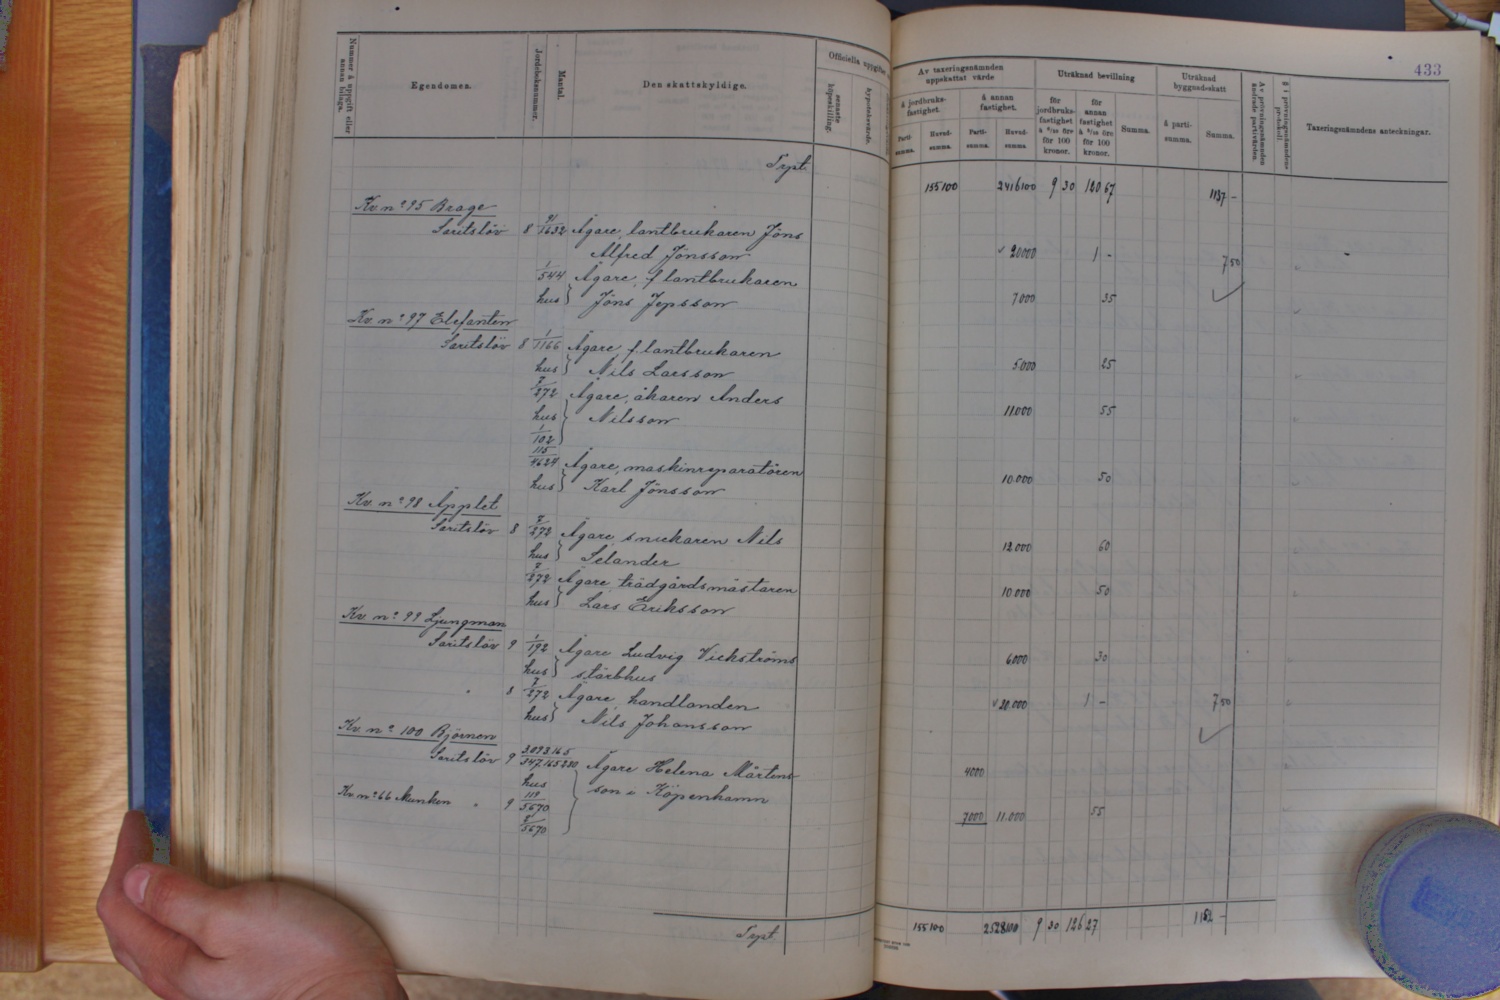 433
Nummer å uppgift eller annan bilaga.
Egendomen.
Jordeboksnummer.
Mantal.
Den skattskyldige.
Officiella uppgifter
senaste köpeskilling.
hypoteksvärde.
Av taxeringsnämnden uppskattat värde
å jordbruksfastighet.
Partisumma.
Huvudsumma.
å annan fastighet.
Partisumma.
Huvudsumma.
Uträknad bevillning
för jordbruksfastighet à 6/10 öre för 100 kronor.
för annan fastighet à 5/10 öre för 100 kronor.
Summa.
Uträknad byggnadsskatt
å partisumma.
Summa.
Av prövningsnämnden ändrade partivärden.
§ i prövningsnämndens protokoll.
Taxeringsnämndens anteckningar.
Trpt. 155100 2416100 9 30 120 67 1137 -
Kv. n:o 95 Brage
Saritslöv 8 91/1632 Ägare, lantbrukaren Jöns
Alfred Jönsson 20000 1 - 7,50
1/544 Ägare, f. lantbrukaren
hus Jöns Jepsson 7.000 35
Kv. n:o 97 Elefanten
Saritslöv 8 1/1166 Ägare, f. lantbrukaren
hus Nils Larsson 5.000 25
7/272 Ägare, åkaren Anders
hus Nilsson 11.000 55
1/102
115/4624 Ägare, maskinreparatören
hus Karl Jönsson 10.000 50
Kv. n:o 98 Äpplet
Saritslöv 8 7/272 Ägare snickaren Nils
hus Selander 12.000 60
7/272 Ägare trädgårdsmästaren
hus Lars Eriksson 10.000 50
Kv. n:o 99 Ljungman
Saritslöv 9 1/192 Ägare Ludvig Vickströms
hus stärbhus 6.000 30
" 8 7/272 Ägare handlanden
hus Nils Johansson 20.000 1 - 7,50
Kv. n:o 100 Björnen
Saritslöv 9 3.093.165/347.165.280 Ägare Helena Mårtens-
hus son i Köpenhamn 4000
Kv. n:o 66 Munken " 9 119/5670 7000 11.000 55
/5670
Trpt. 155100 2528100 9 30 126 27 1152 -